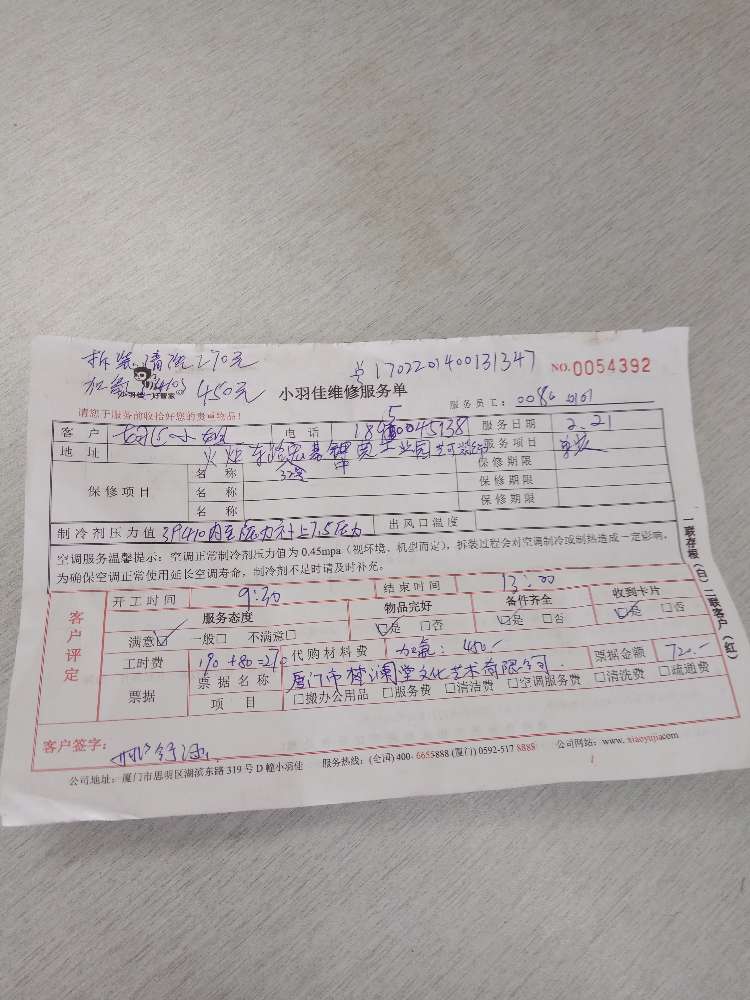 拆装清洗270元
170220140013 1347
NO.0054392
加氟 R410 450元
小羽佳一好管家
小羽佳维修服务单
服务员工:
请您于服务前收拾好您的贵重物品!
客 户 小姐 电 话 服务日期 2.21
地 址 火炬东路 工业园 服务项目
名 称 保修期限
保修项目 名 称 保修期限
名 称 保修期限
制冷剂压力值 出风口温度
空调服务温馨提示:空调正常制冷剂压力值为0.45mpa(视环境、机型而定),拆装过程会对空调制冷或制热造成一定影响,
为确保空调正常使用延长空调寿命,制冷剂不足时请及时补充。
开工时间 9:30 结束时间 13:00
客户评定
服务态度 物品完好 备件齐全 收到卡片
满意☑ 一般□ 不满意□ ☑是 □否 ☑是 □否 ☑是 □否
工时费 190+80=270 代购材料费 加氟:450.- 票据金额 720.-
票据 票据名称 厦门市梵澜堂文化艺术有限公司
项 目 □搬办公用品 □服务费 □清洁费 □空调服务费 □清洗费 □疏通费
客户签字:
公司地址:厦门市思明区湖滨东路319号D幢小羽佳 服务热线:(全国)400-6655888(厦门)0592-517 8888 公司网站:www.xiaoyujia.com
一联存根(白) 二联客户(红)